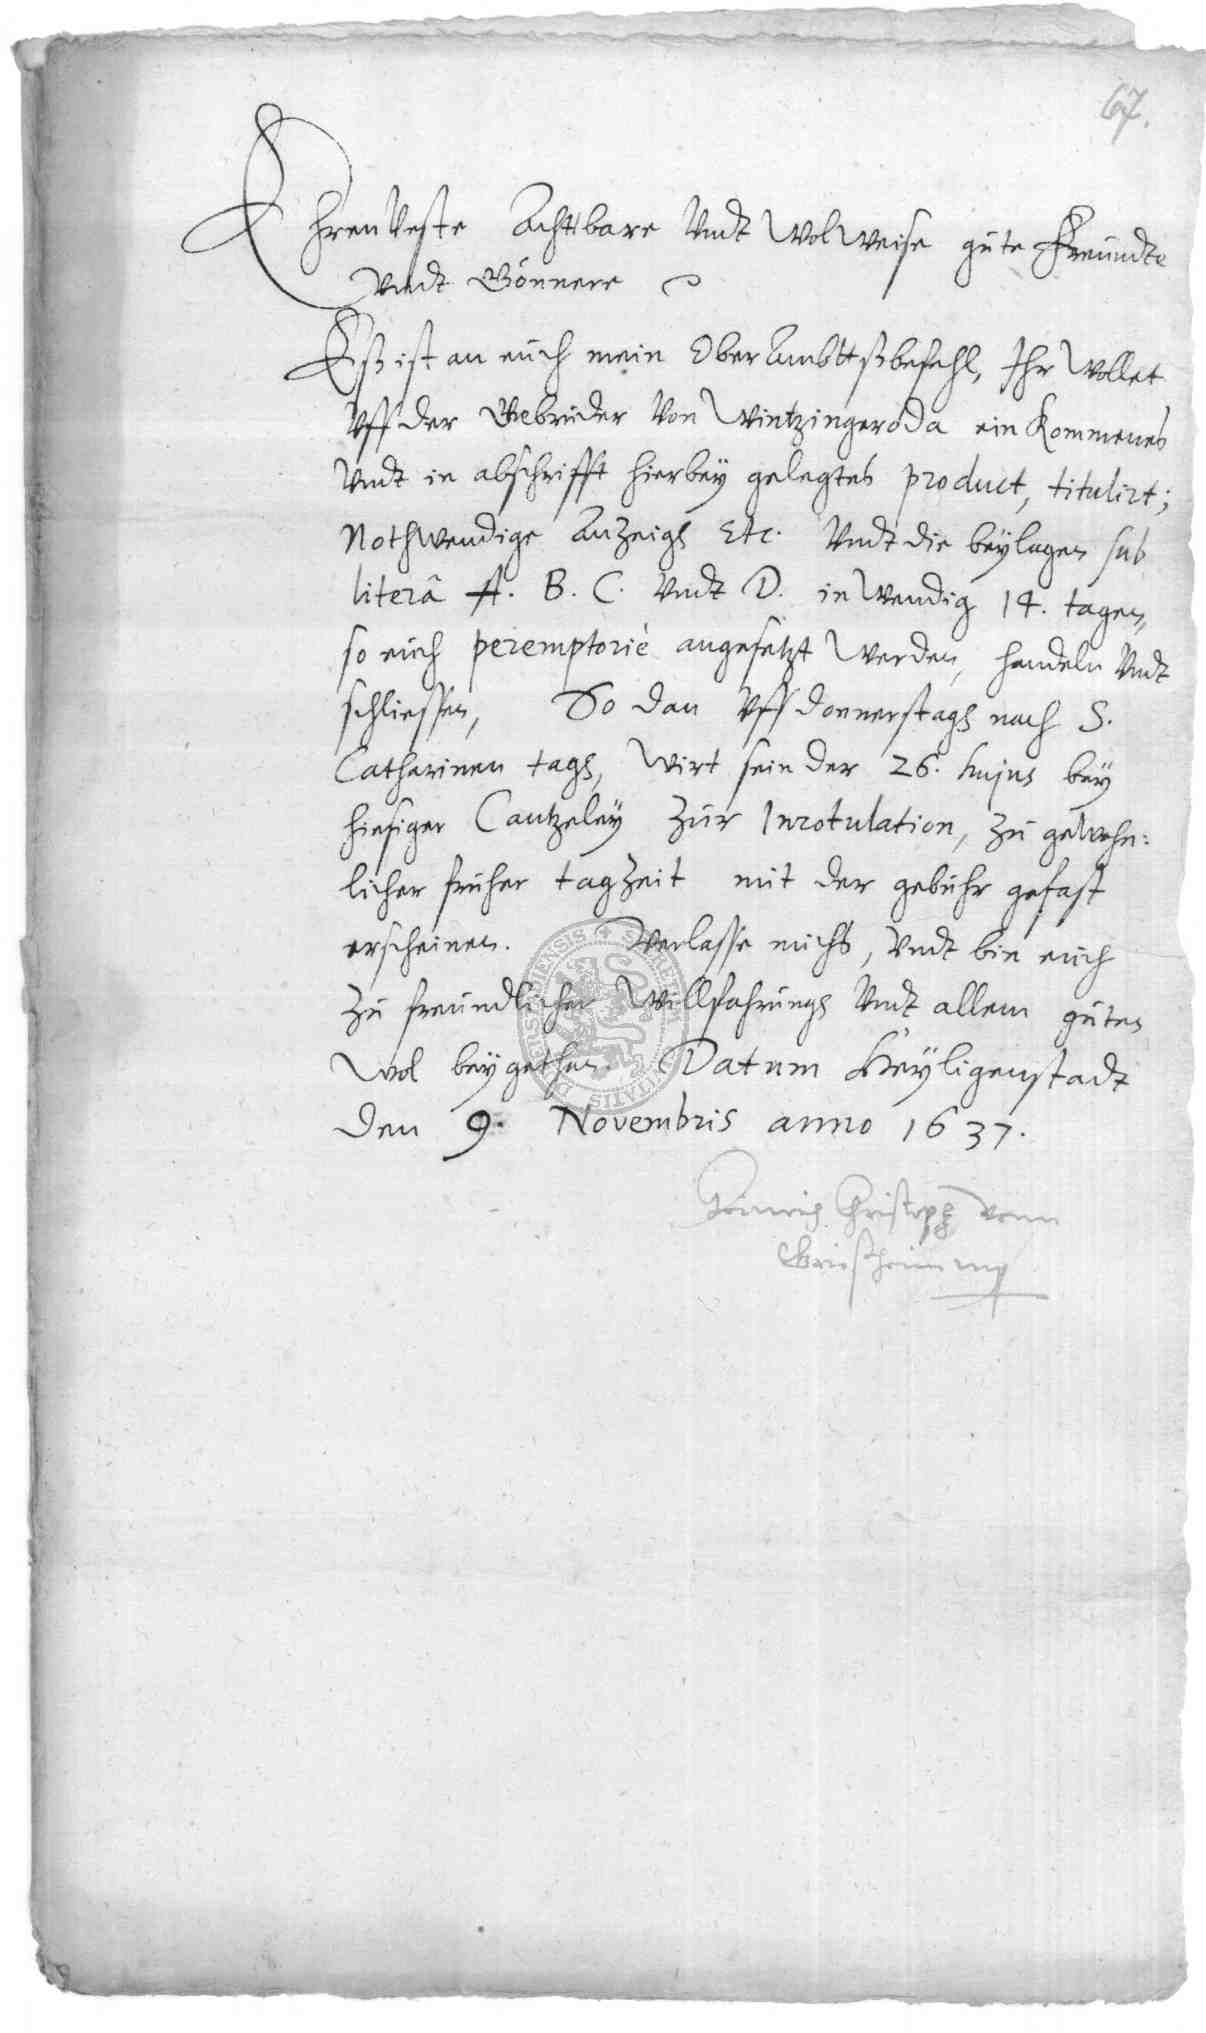 67.
Ehrnveste Achtbare Undt Wolweise gute Freundte
Undt Gönnere
Eß ist an euch mein OberAmbttßbefehl, Ihr Wollet
Uff der Gebrüder Von Wintzingeroda ein Kommenes
Undt in abschrifft hierbey gelegtes product, titulirt;
Nothwendige Anzeigs Etc. Undt die beylagen sub
literâ A. B. C. Undt D. inwendig 14. tagen,
so euch peremptoriè angesetzt Werden, handeln Undt
schliessen, So dan Uff donnerstags nach S.
Catharinen tags, Wirt sein der 26. hujus bey
hiesiger Cantzeley Zur Inrotulation, zu gewohn:
licher früher tagZeit mit der gebühr gefast
erscheinen. Verlasse michs, Undt bin euch
zu freundlicher Willfahrungs Undt allem guten
Wol beygethan. Datum Heyligenstadt
den 9. Novembris anno 1637.
Heinrich Christoph vonn
Griesheim mp